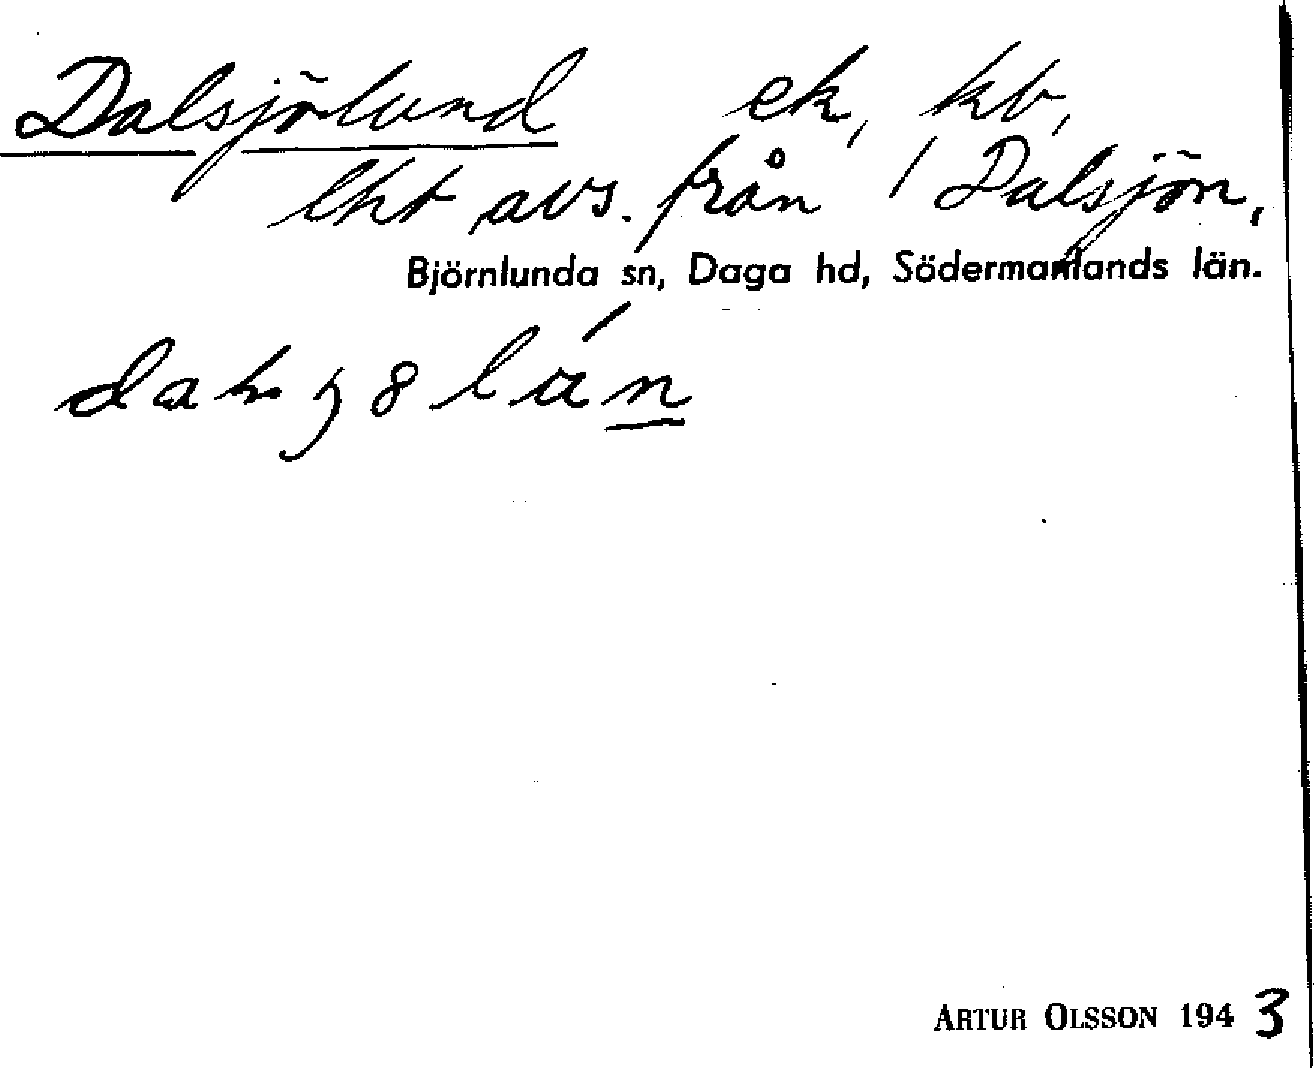 Dalsjölund ek, kb,
lht avs. från / Dalsjön,
Björnlunda sn, Daga hd, Södermanlands län.
ARTUR OLSSON 1943